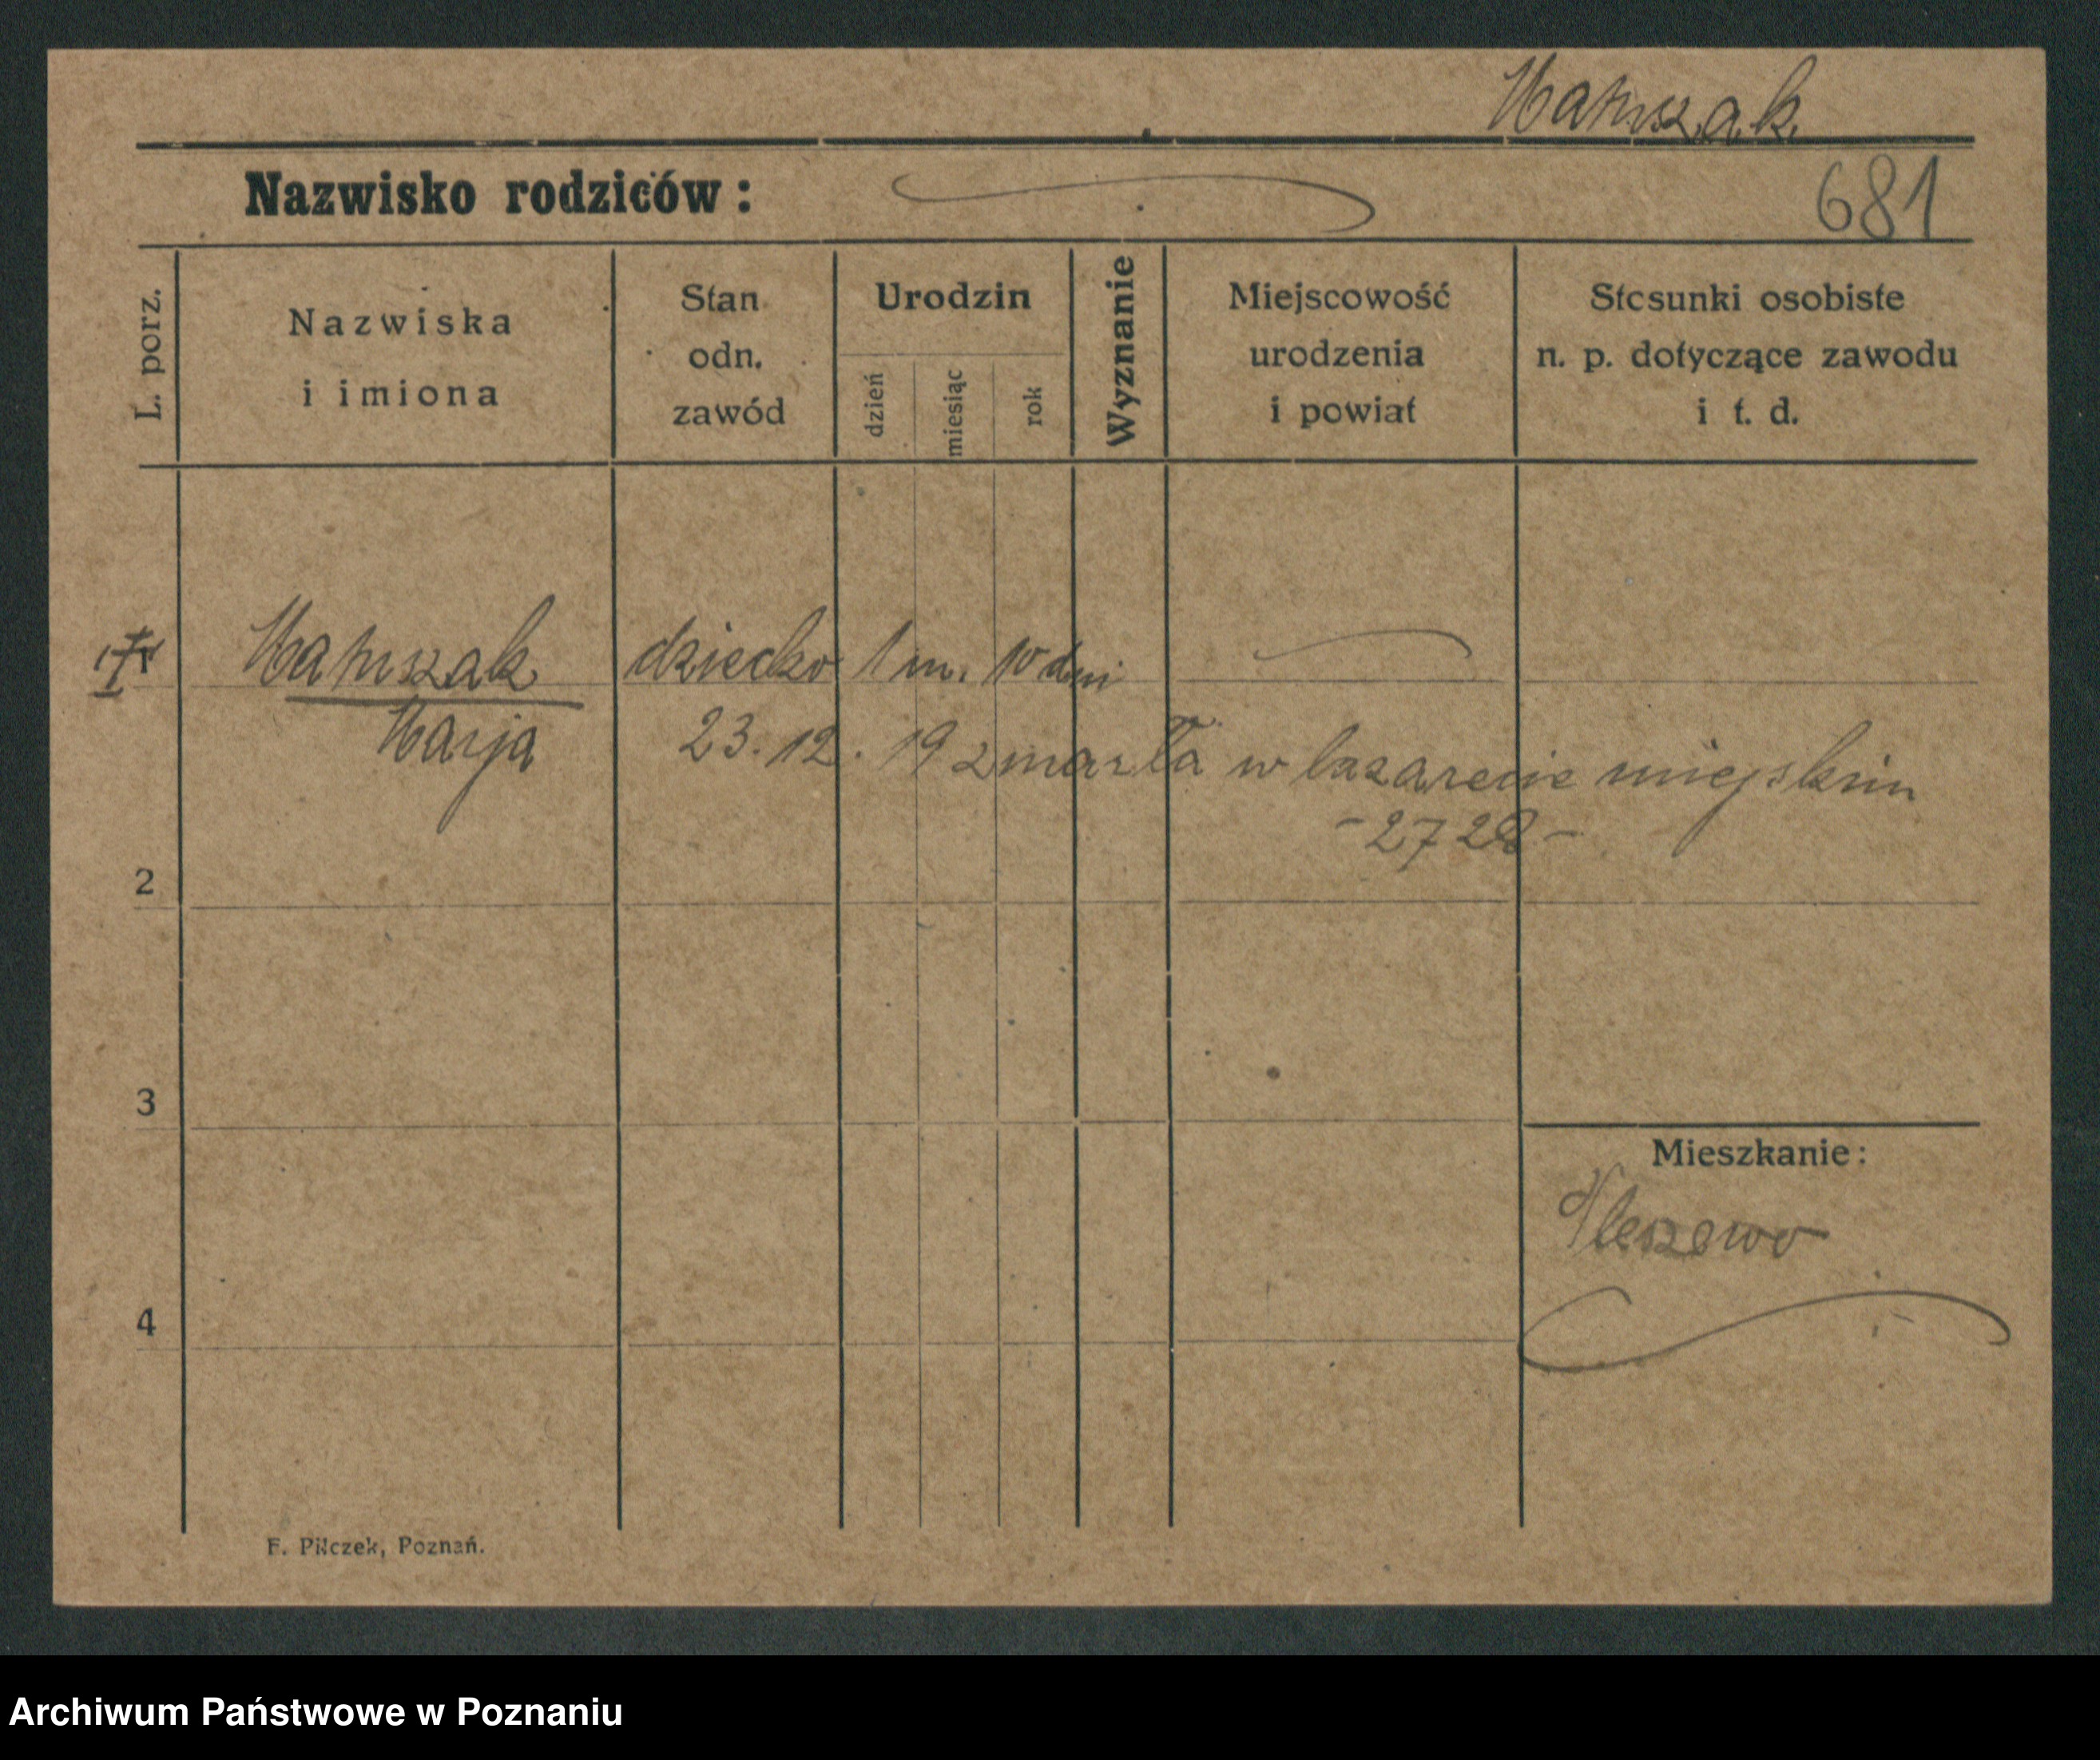 Matuszak
Nazwisko rodziców:
681
L. porz.
Nazwiska
i imiona
Stan
odn.
zawód
Urodzin
dzień
miesiąc
rok
Wyznanie
Miejscowość
urodzenia
i powiat
Stosunki osobiste
n. p. dotyczące zawodu
i t. d.
Matuszak dziecko 1 m. 10 dni
Marja 23.12.19 zmarła w lazarecie miejskim
-2728-
2
3
Mieszkanie:
4
F. Pilczek, Poznań.
Archiwum Państwowe w Poznaniu